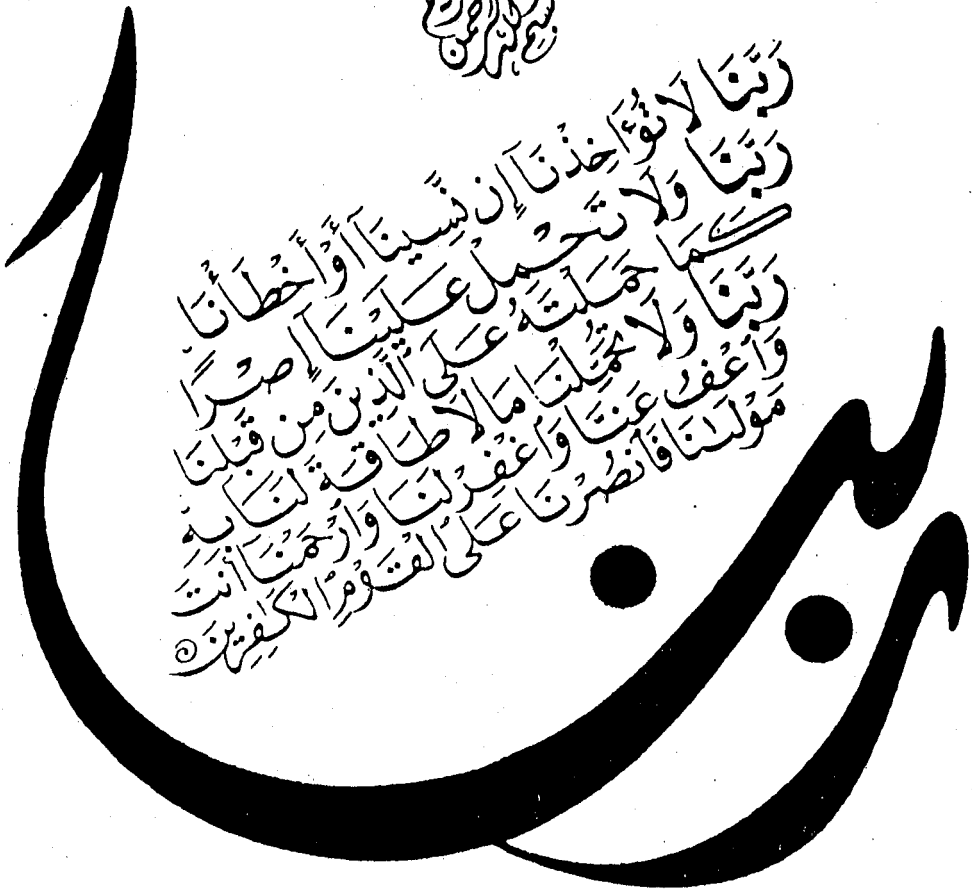 بسم الله الرحمن
رَبَّنَا لَا تُؤَاخِذْنَآ إِن نَّسِينَآ أَوْ أَخْطَأْنَا
رَبَّنَا وَلَا تَحْمِلْ عَلَيْنَآ إِصْرًا
كَمَا حَمَلْتَهُ عَلَى ٱلَّذِينَ مِن قَبْلِنَا
رَبَّنَا وَلَا تُحَمِّلْنَا مَا لَا طَاقَةَ لَنَا بِهِ
وَٱعْفُ عَنَّا وَٱغْفِرْ لَنَا وَٱرْحَمْنَآ أَنتَ
مَوْلَىٰنَا فَٱنصُرْنَا عَلَى ٱلْقَوْمِ ٱلْكَافِرِينَ
ربنا